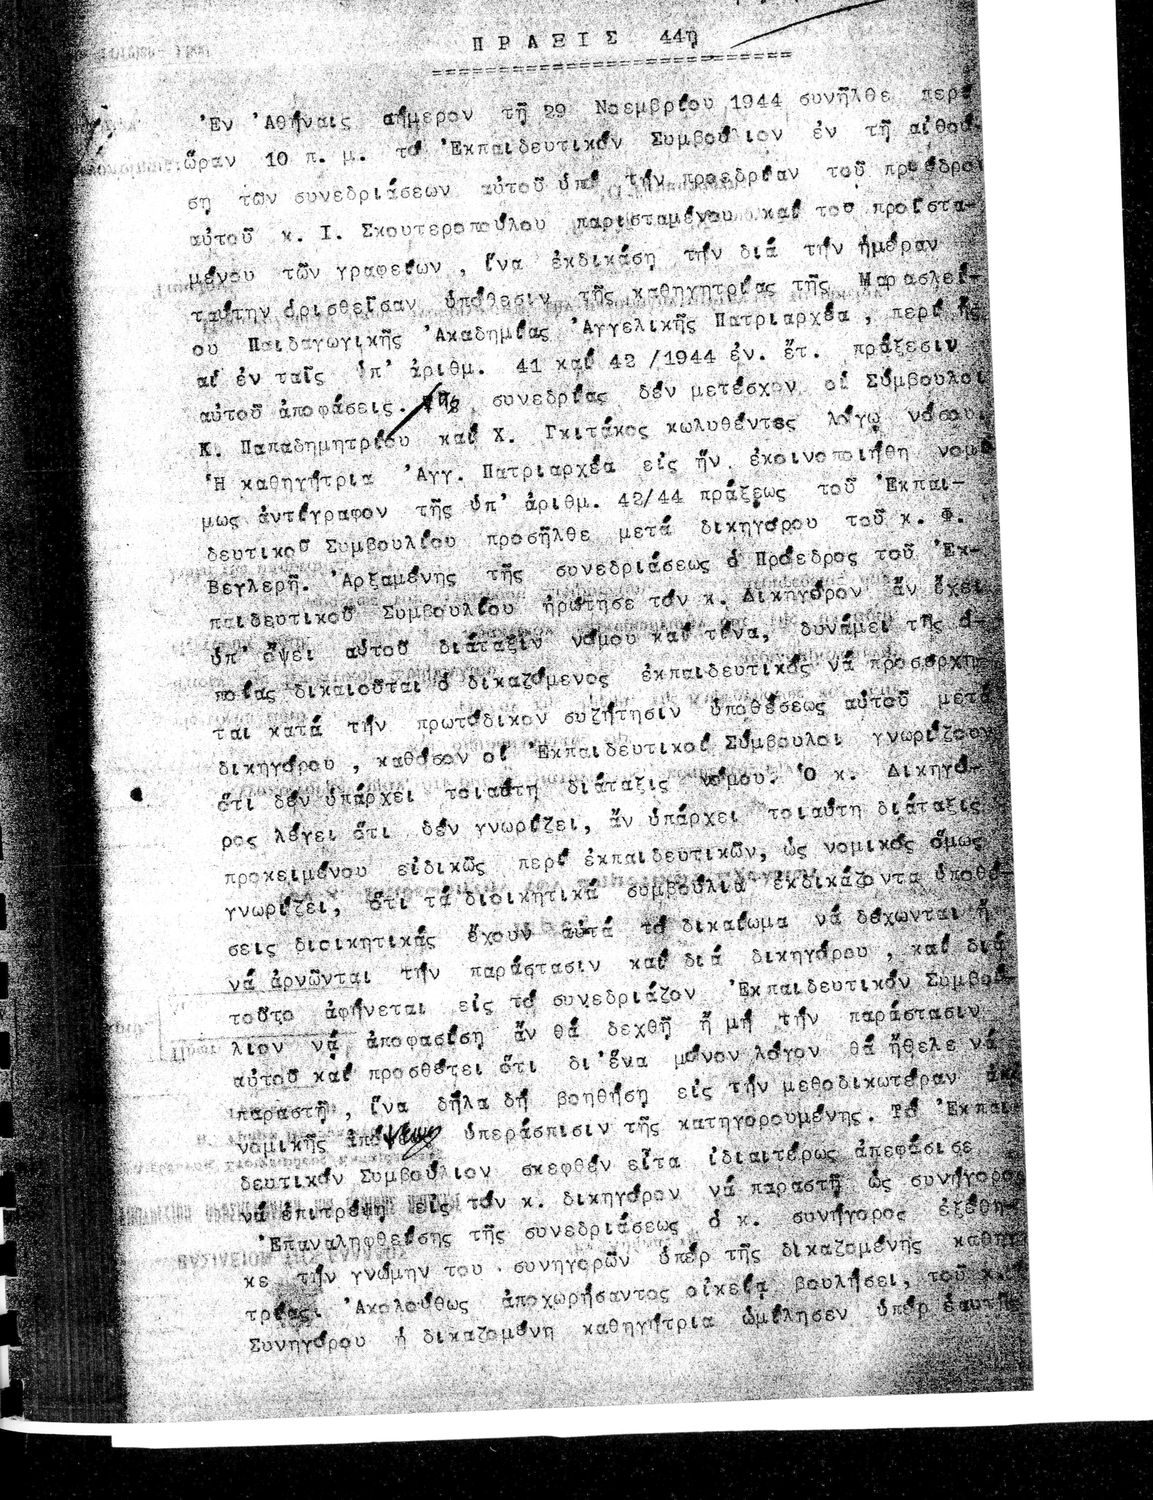 ΠΡΑΞΙΣ 44η
Ἐν Ἀθήναις σήμερον τῇ 29 Νοεμβρίου 1944 συνῆλθε περί
ὥραν 10 π. μ. τό Ἐκπαιδευτικόν Συμβούλιον ἐν τῇ αἰθού
σῃ τῶν συνεδριάσεων αὐτοῦ ὑπό τήν προεδρίαν τοῦ προέδρου
αὐτοῦ κ. Ι. Σκουτεροπούλου παρισταμένου καί του προϊστα-
μένου τῶν γραφείων, ἵνα ἐκδικάσῃ τήν διά τήν ἡμέραν
ταύτην ὁρισθεῖσαν ὑπόθεσιν τῆς καθηγητρίας τῆς Μαρασλεί-
ου Παιδαγωγικῆς Ἀκαδημίας Ἀγγελικῆς Πατριαρχέα, περί ἧς
αἱ ἐν ταῖς ὑπ' ἀριθμ. 41 καί 42 /1944 ἐν. ἔτ. πράξεσιν
αὐτοῦ ἀποφάσεις. Τῆς συνεδρίας δέν μετέσχον οἱ Σύμβουλοι
Κ. Παπαδημητρίου καί Χ. Γκιτάκος κωλυθέντες λόγῳ νόσου.
Ἡ καθηγήτρια Ἀγγ. Πατριαρχέα εἰς ἥν ἐκοινοποιήθη νομί
μως ἀντίγραφον τῆς ὑπ' ἀριθμ. 42/44 πράξεως τοῦ Ἐκπαι-
δευτικοῦ Συμβουλίου προσῆλθε μετά δικηγόρου τοῦ κ. Φ.
Βεγλερῆ. Ἀρξαμένης τῆς συνεδριάσεως ὁ Πρόεδρος τοῦ Ἐκ-
παιδευτικοῦ Συμβουλίου ἠρώτησε τόν κ. Δικηγόρον ἄν ἔχει
ὑπ' ὄψει αὐτοῦ διάταξιν νόμου καί τίνα, δυνάμει τῆς ὁ-
ποίας δικαιοῦται ὁ δικαζόμενος ἐκπαιδευτικός νά προσέρχη-
ται κατά τήν πρωτόδικον συζήτησιν ὑποθέσεως αὐτοῦ μετά
δικηγόρου, καθόσον οἱ Ἐκπαιδευτικοί Σύμβουλοι γνωρίζουν
ὅτι δέν ὑπάρχει τοιαύτη διάταξις νόμου. Ὁ κ. Δικηγό-
ρος λέγει ὅτι δέν γνωρίζει, ἄν ὑπάρχει τοιαύτη διάταξις
προκειμένου εἰδικῶς περί ἐκπαιδευτικῶν, ὡς νομικός ὅμως
γνωρίζει, ὅτι τά διοικητικά συμβούλια ἐκδικάζοντα ὑποθέ-
σεις διοικητικάς ἔχουν αὐτά τό δικαίωμα νά δέχωνται ἤ
νά ἀρνῶνται τήν παράστασιν καί διά δικηγόρου, καί διά
τοῦτο ἀφήνεται εἰς τό συνεδριάζον Ἐκπαιδευτικόν Συμβού-
λιον νά ἀποφασίσῃ ἄν θά δεχθῇ ἤ μή τήν παράστασιν
αὐτοῦ καί προσθέτει ὅτι δι'ἕνα μόνον λόγον θά ἤθελε νά
παραστῇ, ἵνα δηλαδή βοηθήσῃ εἰς τήν μεθοδικωτέραν ἀπό
νομικῆς ἀπόψεως ὑπεράσπισιν τῆς κατηγορουμένης. Τό Ἐκπαι
δευτικόν Συμβούλιον σκεφθέν εἶτα ἰδιαιτέρως ἀπεφάσισε
νά ἐπιτρέψῃ εἰς τόν κ. δικηγόρον νά παραστῇ ὡς συνήγορος
Ἐπαναληφθείσης τῆς συνεδριάσεως ὁ κ. συνήγορος ἐξέθη-
κε τήν γνώμην του συνηγορῶν ὑπέρ τῆς δικαζομένης καθηγη
τρίας. Ἀκολούθως ἀποχωρήσαντος οἰκείᾳ βουλήσει, τοῦ κ.
Συνηγόρου ἡ δικαζομένη καθηγήτρια ὡμίλησεν ὑπέρ ἑαυτῆς